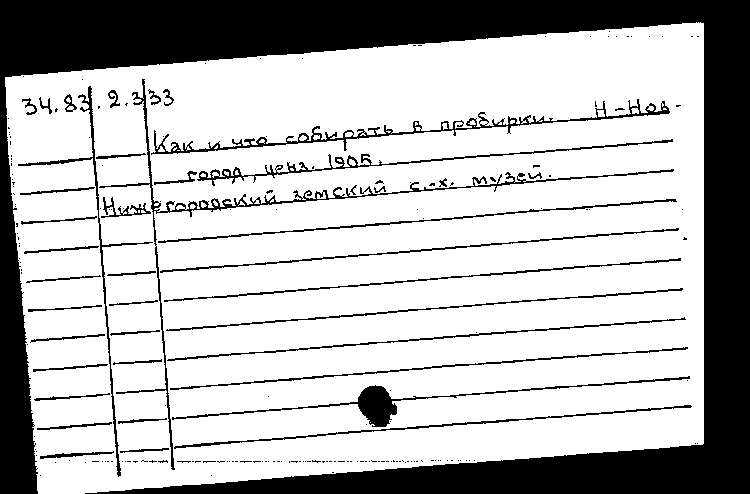 34.83.2.333
Как и что собирать в пробирки. Н-Нов-
город, ценз. 1905.
Нижегородский земский с.-х. музей.